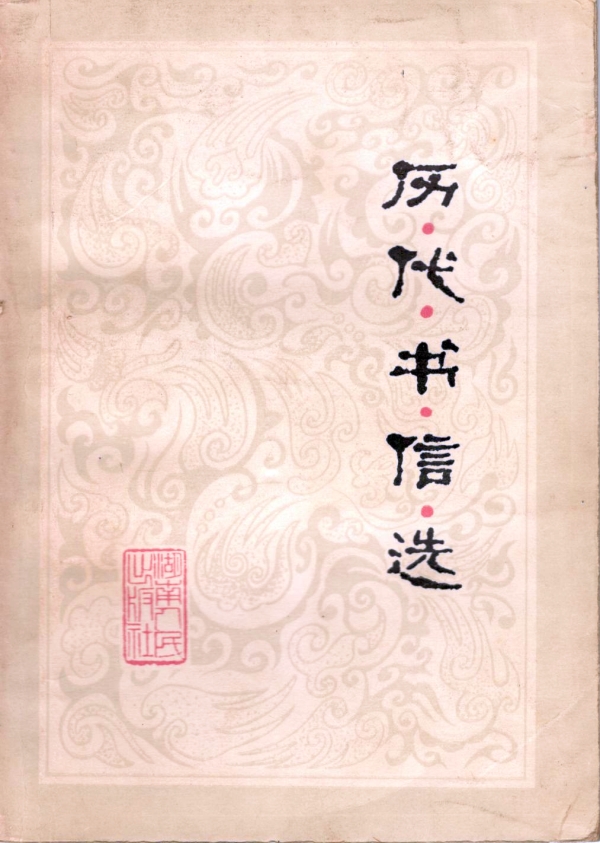 历·代·书·信·选
湖南人民
出版社